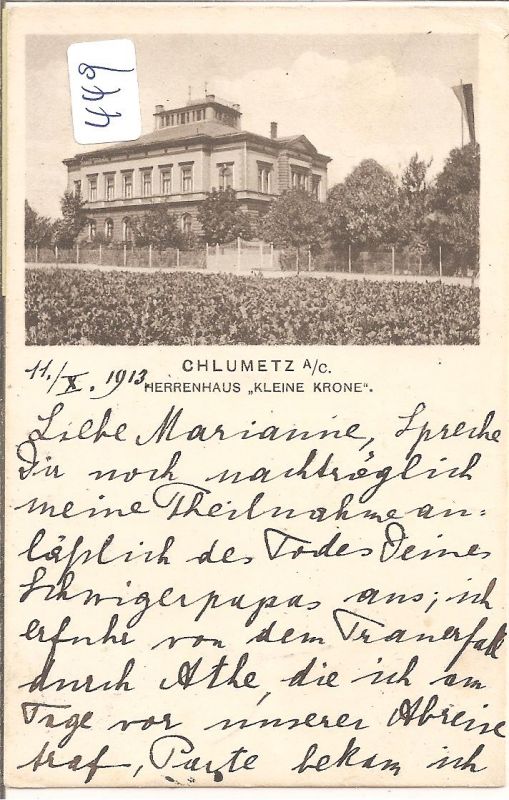 449
CHLUMETZ A/C.
11./X. 1913.
HERRENHAUS „KLEINE KRONE".
Liebe Marianne, Spreche
Dir noch nachträglich
meine Theilnahme an=
läßlich des Todes Deines
Schwigerpapas aus; ich
erfuhr von dem Trauerfall
durch Athe, die ich am
Tage vor unserer Abreise
traf, Parte bekam ich